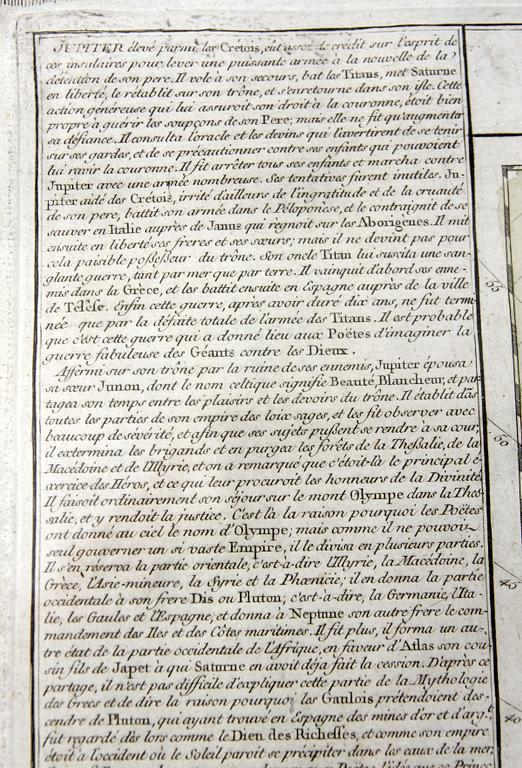 JUPITER élevé parmi les Cretois, eut assez de crédit sur l'esprit de
ces insulaires pour lever une puissante armée à la nouvelle de la
détention de son pere. Il vole à son secours, bat les Titans, met Saturne
en liberté, le rétablit sur son trône, et s'en retourne dans son isle. Cette
action généreuse qui lui assuroit son droit à la couronne, étoit bien
propre à guérir les soupçons de son Pere; mais elle ne fit qu'augmenter
sa défiance. Il consulta l'oracle et les devins qui l'avertirent de se tenir
sur ses gardes, et de se précautionner contre ses enfants qui pouvoient
lui ravir la couronne. Il fit arrêter tous ses enfants et marcha contre
Jupiter avec une armée nombreuse. Ses tentatives furent inutiles. Ju-
piter aidé des Crétois, irrité d'ailleurs de l'ingratitude et de la cruauté
de son pere, battit son armée dans le Péloponese, et le contraignit de se
sauver en Italie auprès de Janus qui régnoit sur les Aborigenes. Il mit
ensuite en liberté ses freres et ses sœurs; mais il ne devint pas pour
cela paisible possesseur du trône. Son oncle Titan lui suscita une san-
glante guerre, tant par mer que par terre. Il vainquit d'abord ses enne-
mis dans la Grèce, et les battit ensuite en Espagne auprès de la ville
de Télèse. Enfin cette guerre, après avoir duré dix ans, ne fut termi-
née que par la défaite totale de l'armée des Titans. Il est probable
que c'est cette guerre qui a donné lieu aux Poëtes d'imaginer la
guerre fabuleuse des Géants contre les Dieux.
Affermi sur son trône par la ruine de ses ennemis, Jupiter épousa
sa sœur Junon, dont le nom celtique signifie Beauté, Blancheur, et par-
tagea son temps entre les plaisirs et les devoirs du trône. Il établit dãs
toutes les parties de son empire des loix sages, et les fit observer avec
beaucoup de sévérité, et afin que ses sujets pussent se rendre à sa cour,
il extermina les brigands et en purgea les forêts de la Thessalie, de la
Macédoine et de l'Illyrie, et on a remarqué que c'étoit-là le principal e-
xercice des Héros, et ce qui leur procuroit les honneurs de la Divinité.
Il faisoit ordinairement son séjour sur le mont Olympe dans la Thes-
salie, et y rendoit la justice. C'est là la raison pourquoi les Poëtes
ont donné au ciel le nom d'Olympe; mais comme il ne pouvoit
seul gouverner un si vaste Empire, il le divisa en plusieurs parties.
Il s'en réserva la partie orientale, c'est-à-dire l'Illyrie, la Macédoine, la
Grèce, l'Asie-mineure, la Syrie et la Phœnicie; il en donna la partie
occidentale à son frere Dis ou Pluton; c'est-à-dire, la Germanie, l'Ita-
lie, les Gaules et l'Espagne, et donna à Neptune son autre frere le com-
mandement des Iles et des Côtes maritimes. Il fit plus, il forma un au-
tre état de la partie occidentale de l'Afrique, en faveur d'Atlas son cou-
sin fils de Japet à qui Saturne en avoit déja fait la cession. D'après ce
partage, il n'est pas difficile d'expliquer cette partie de la Mythologie
des Grecs et de dire la raison pourquoi les Gaulois prétendoient des-
cendre de Pluton, qui ayant trouvé en Espagne des mines d'or et d'arg.t
fut regardé dès lors comme le Dieu des Richesses, et comme son empire
étoit à l'occident où le Soleil paroit se précipiter dans les eaux de la mer,
55
50
45
40